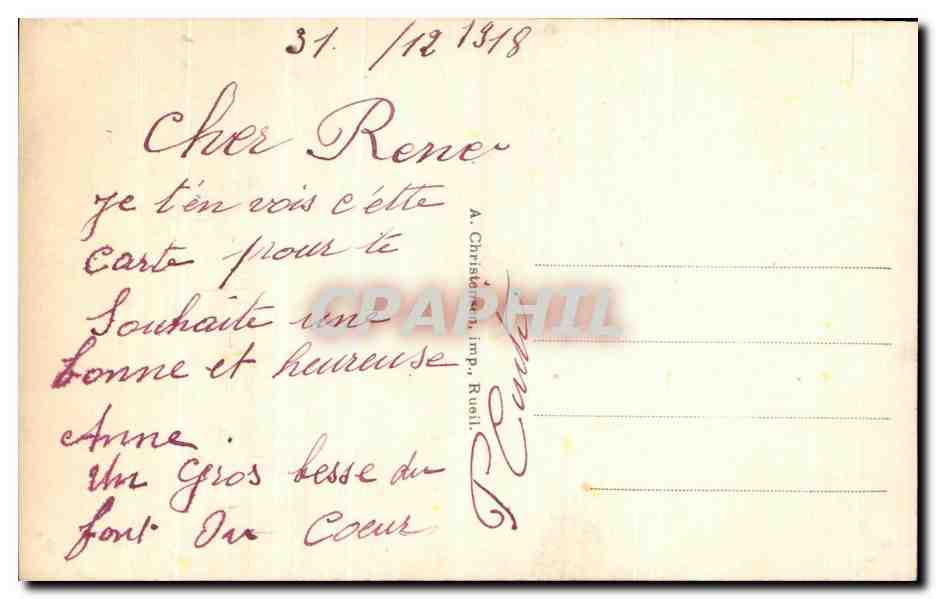 31. /12 1918
Cher Rene
je t'en vois c'ette
carte pour te
Souhaite une
bonne et heureuse
Anne.
un gros besse du
font du Coeur
A. Christensen, imp., Rueil.
CPAPHIL